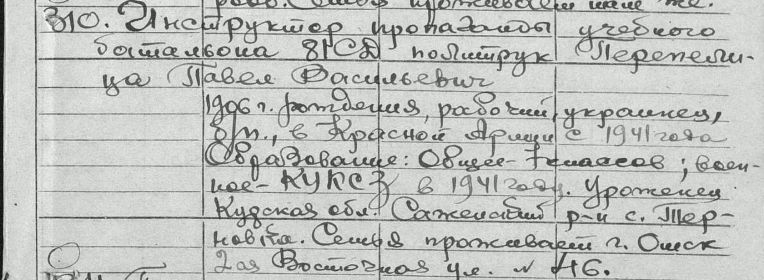 310. Инструктор пропаганды учебного
батальона 81СД политрук Перепели-
ца Павел Васильевич
1906 г. рождения, рабочий, украинец,
б/п., в Красной Армии с 1941 года
Образование: Общее - 7 классов; воен-
ное - КУКС в 1941 году. Уроженец
Кудская обл. Саженский р-н с. Тер-
новка. Семья проживает г. Омск
2ая Восточная ул. № 46.